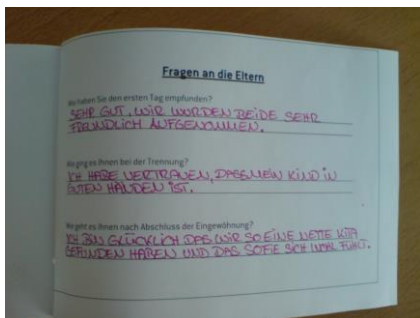 Fragen an die Eltern
Wie haben Sie den ersten Tag empfunden?
SEHR GUT, WIR WURDEN BEIDE SEHR
FREUNDLICH AUFGENOMMEN.
Wie ging es Ihnen bei der Trennung?
ICH HABE VERTRAUEN, DASS MEIN KIND IN
GUTEN HÄNDEN IST.
Wie geht es Ihnen nach Abschluss der Eingewöhnung?
ICH BIN GLÜCKLICH DAS WIR SO EINE NETTE KITA
GEFUNDEN HABEN UND DAS SOFIE SICH WOHL FÜHLT.